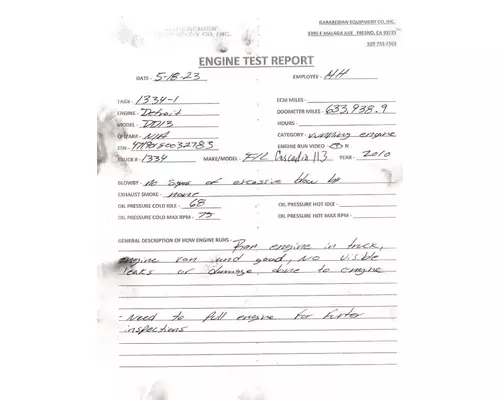 GARABEDIAN EQUIPMENT CO, INC.
3395 E MALAGA AVE. FRESNO, CA 93725
CO, INC.
ENGINE TEST REPORT
DATE - 5-18-23 EMPLOYEE - MH
TAG# - 1334-1 ECM MILES -
ENGINE - Detroit ODOMETER MILES - 633,938.9
MODEL - DD13 HOURS -
CPL/AR# - N/A CATEGORY - running engine
ESN - ENGINE RUN VIDEO Y N
TRUCK # - 1334 MAKE/MODEL - F/L Cascadia 113 YEAR - 2010
BLOWBY - no signs of excessive blow by
EXHAUST SMOKE - none
OIL PRESSURE COLD IDLE - 68 OIL PRESSURE HOT IDLE -
OIL PRESSURE COLD MAX RPM - 75 OIL PRESSURE HOT MAX RPM -
GENERAL DESCRIPTION OF HOW ENGINE RUNS - Ran engine in truck,
engine ran good, NO visible
leaks or damage done to engine
- Need to pull engine for furter
inspections